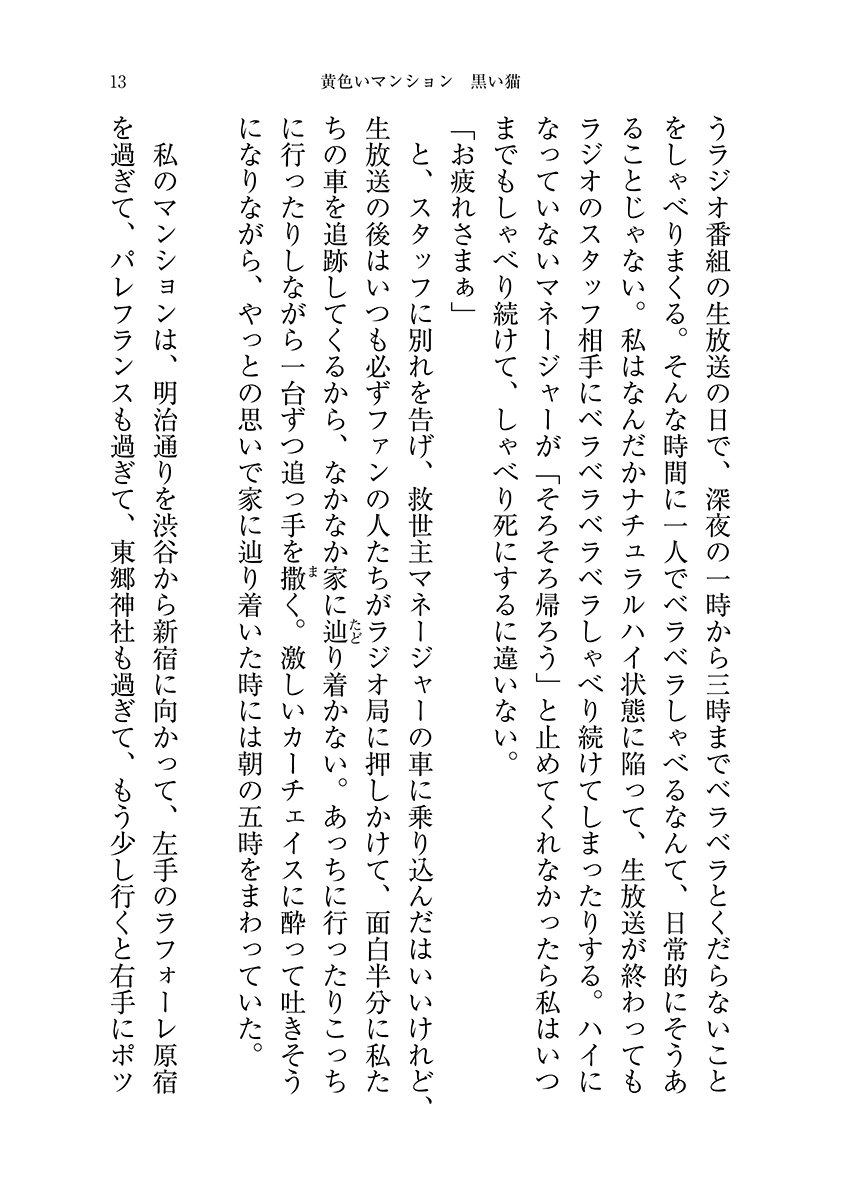 13
黄色いマンション　黒い猫
うラジオ番組の生放送の日で、深夜の一時から三時までベラベラとくだらないこと
をしゃべりまくる。そんな時間に一人でベラベラしゃべるなんて、日常的にそうあ
ることじゃない。私はなんだかナチュラルハイ状態に陥って、生放送が終わっても
ラジオのスタッフ相手にベラベラベラベラしゃべり続けてしまったりする。ハイに
なっていないマネージャーが「そろそろ帰ろう」と止めてくれなかったら私はいつ
までもしゃべり続けて、しゃべり死にするに違いない。
「お疲れさまぁ」
　と、スタッフに別れを告げ、救世主マネージャーの車に乗り込んだはいいけれど、
生放送の後はいつも必ずファンの人たちがラジオ局に押しかけて、面白半分に私た
ちの車を追跡してくるから、なかなか家に辿り着かない。あっちに行ったりこっち
に行ったりしながら一台ずつ追っ手を撒く。激しいカーチェイスに酔って吐きそう
になりながら、やっとの思いで家に辿り着いた時には朝の五時をまわっていた。
　私のマンションは、明治通りを渋谷から新宿に向かって、左手のラフォーレ原宿
を過ぎて、パレフランスも過ぎて、東郷神社も過ぎて、もう少し行くと右手にポツ